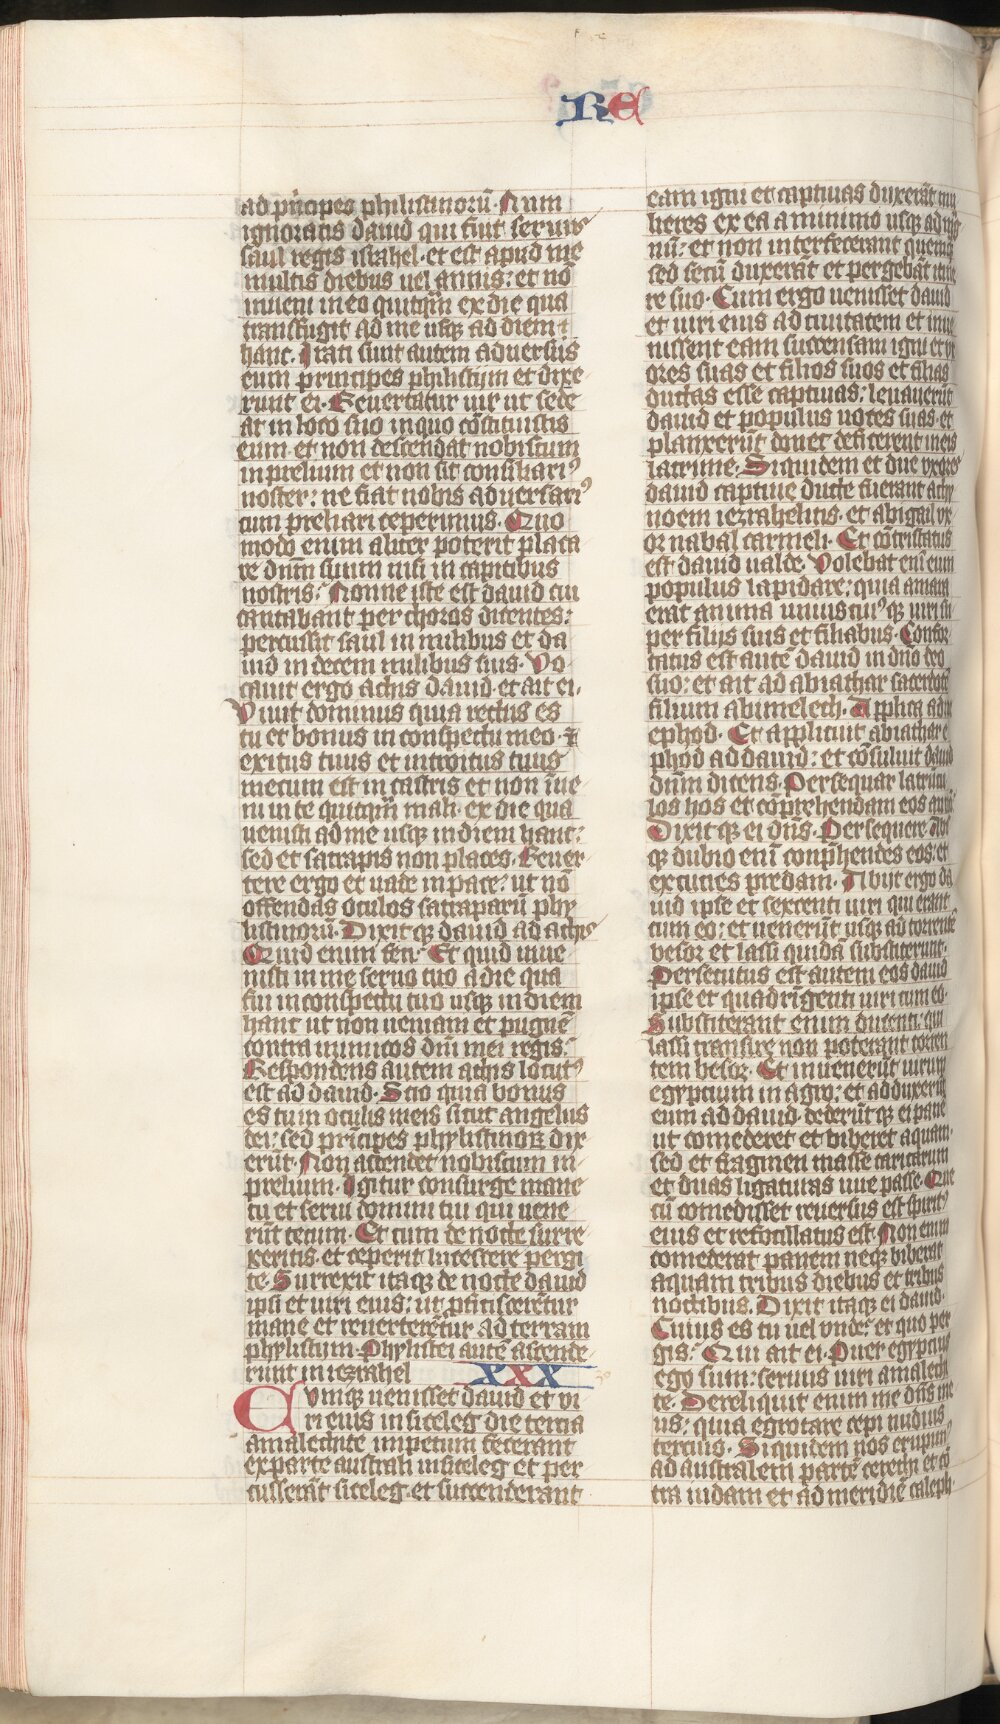 RE
ad p̃ncipes philistinorũ. Num
ignoratis dauid qui fuit seruus
saul regis israhel. et est apud me
multis diebus uel annis: et nõ
inueni in eo quitq̃m ex die qua
transfugit ad me usq̨ ad diem
hanc. Irati sunt autem aduersus
eum principes philistijm et dixe
runt ei. Reuertatur uir ut sede
at in loco suo in quo cõstituistis
eum et non descendat nobiscum
in prelium et non sit consiliariꝰ
noster: ne fiat nobis aduersariꝰ
cum preliari ceperimus. Quo
modo enim aliter poterit placa
re dñm suum nisi in capitibus
nostris: Nonne iste est dauid cui
cantabant per choros dicentes:
percussit saul in milibus et da
uid in decem milibus suis. Vo
cauit ergo achis dauid. et ait ei.
Viuit dominus quia rectus es
tu et bonus in conspectu meo. ⁊
exitus tuus et introitus tuus
mecum est in castris et non ĩue
ni in te quitq̃m mali. ex die qua
uenisti ad me usq̨ in diem hanc:
sed et satrapis non places. Reuer
tere ergo et uade in pace: ut nõ
offendas oculos satraparũ phy
listinorũ. Dixit q̨ dauid ad achis
Quid enim feci. Et quid inue
nisti in me seruo tuo a die qua
fui in conspectu tuo usq̨ in diem
hanc ut non ueniam et pugnẽ
contra inimicos dñi mei regis:
Respondens autem achis locutꝰ
est ad dauid. Scio quia bonus
es tu in oculis meis sicut angelus
dei: sed prĩcipes phylistinoꝝ dix
erũt. Non ascendet nobiscum in
prelium. Igitur consurge mane
tu et serui domini tui qui uene
rũt tecum. Et cum de nocte surre
xeritis. et ceperit lucescere pergi
te. Surrexit itaq̨ de nocte dauid
ipsi et uiri eius: ut p̃ficiscerẽtur
mane et reuerterẽtur ad terram
phylistium. Phylistei autẽ ascende
runt in iezrahel XXX
Cumq̨ uenisset dauid et ui
ri eius in siceleg die tercia
amalechite impetum fecerant
ex parte australi in siceleg et per
cusserãt siceleg. et succenderant
eam igni et captiuas duxerãt mu
lieres ex ea a minimo usq̨ ad mag
nũ: et non interfecerant quemq̃
sed secũ duxerãt et pergebãt itine
re suo. Cum ergo uenisset dauid
et uiri eius ad ciuitatem et inue
nissent eam succensam igni et vx
ores suas et filios suos et filias
ductas esse captiuas: leuauerũt
dauid et populus uoces suas. et
planxerũt donec deficerent in eis
lacrime. Siquidem et due vxores
dauid captiue ducte fuerant achy
noem iezrahelitis. et abigail vx
oꝝ nabal carmeli. Et cõtristatus
est dauid ualde. Volebat enĩ eum
populus lapidare: quia amara
erat anima uniuscuiꝰq̨ uiri su
per filijs suis et filiabus. Confor
tatus est autẽ dauid in dño deo
suo: et ait ad abiathar sacerdotẽ
filium abimelech. Applica ad me
ephod. Et applicuit abiathar e
phod ad dauid: et cõsuluit dauid
dñm dicens. Persequar latrũcu
los hos et cõprehendam eos an nõ:
Dixit q̨ ei dñs. Persequere. Abs
q̨ dubio enĩ conp̃hendes eos: et
excuties predam. Abijt ergo da
uid ipse et sexcenti uiri qui erant
cum eo: et uenerũt usq̨ ad torrentẽ
besor et lassi quidã substiterunt.
Persecutus est autem eos dauid
ipse et quadrĩgenti uiri cum eo.
Substiterant enim ducenti: qui
lassi transire non poterant torren
tem besor. Et inuenerũt uirum
egyptium in agro: et adduxerũt
eum ad dauid. dederũt q̨ ei panẽ
ut comederet et biberet aquam.
sed et fragmen masse caricarum
et duas ligaturas uue passe. Que
cũ comedisset reuersus est spiritꝰ
eius et refocillatus est. Non enim
comederat panem neq̨ biberat
aquam tribus diebus et tribus
noctibus. Dixit itaq̨ ei dauid.
Cuius es tu uel unde: et quo per
gis: Qui ait ei. Puer egypcius
ego sum: seruus uiri amalechi
te. Dereliquit enim me dñs me
us: quia egrotare cepi nudius
tercius. Siquidem nos erupimꝰ
ad australem partẽ cerethi et cõ
tra iudam et ad meridiẽ caleph.